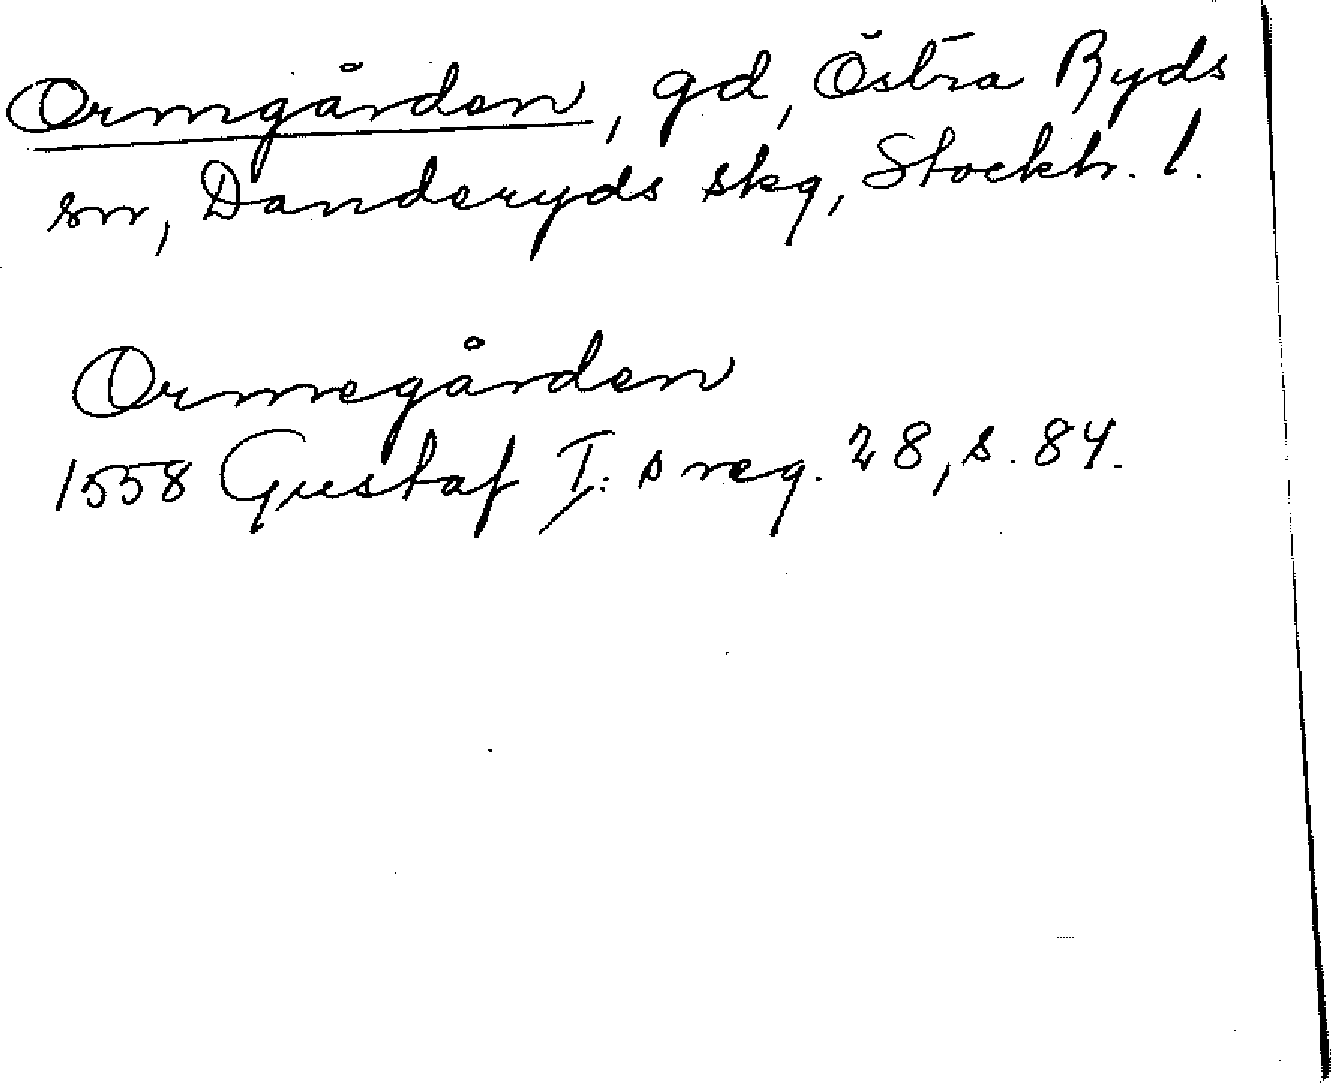 Ormgården, gd, Östra Ryds
sn, Danderyds skg, Stockh. l.
Ormegården
1558 Gustaf I:s reg. 28, s. 84.